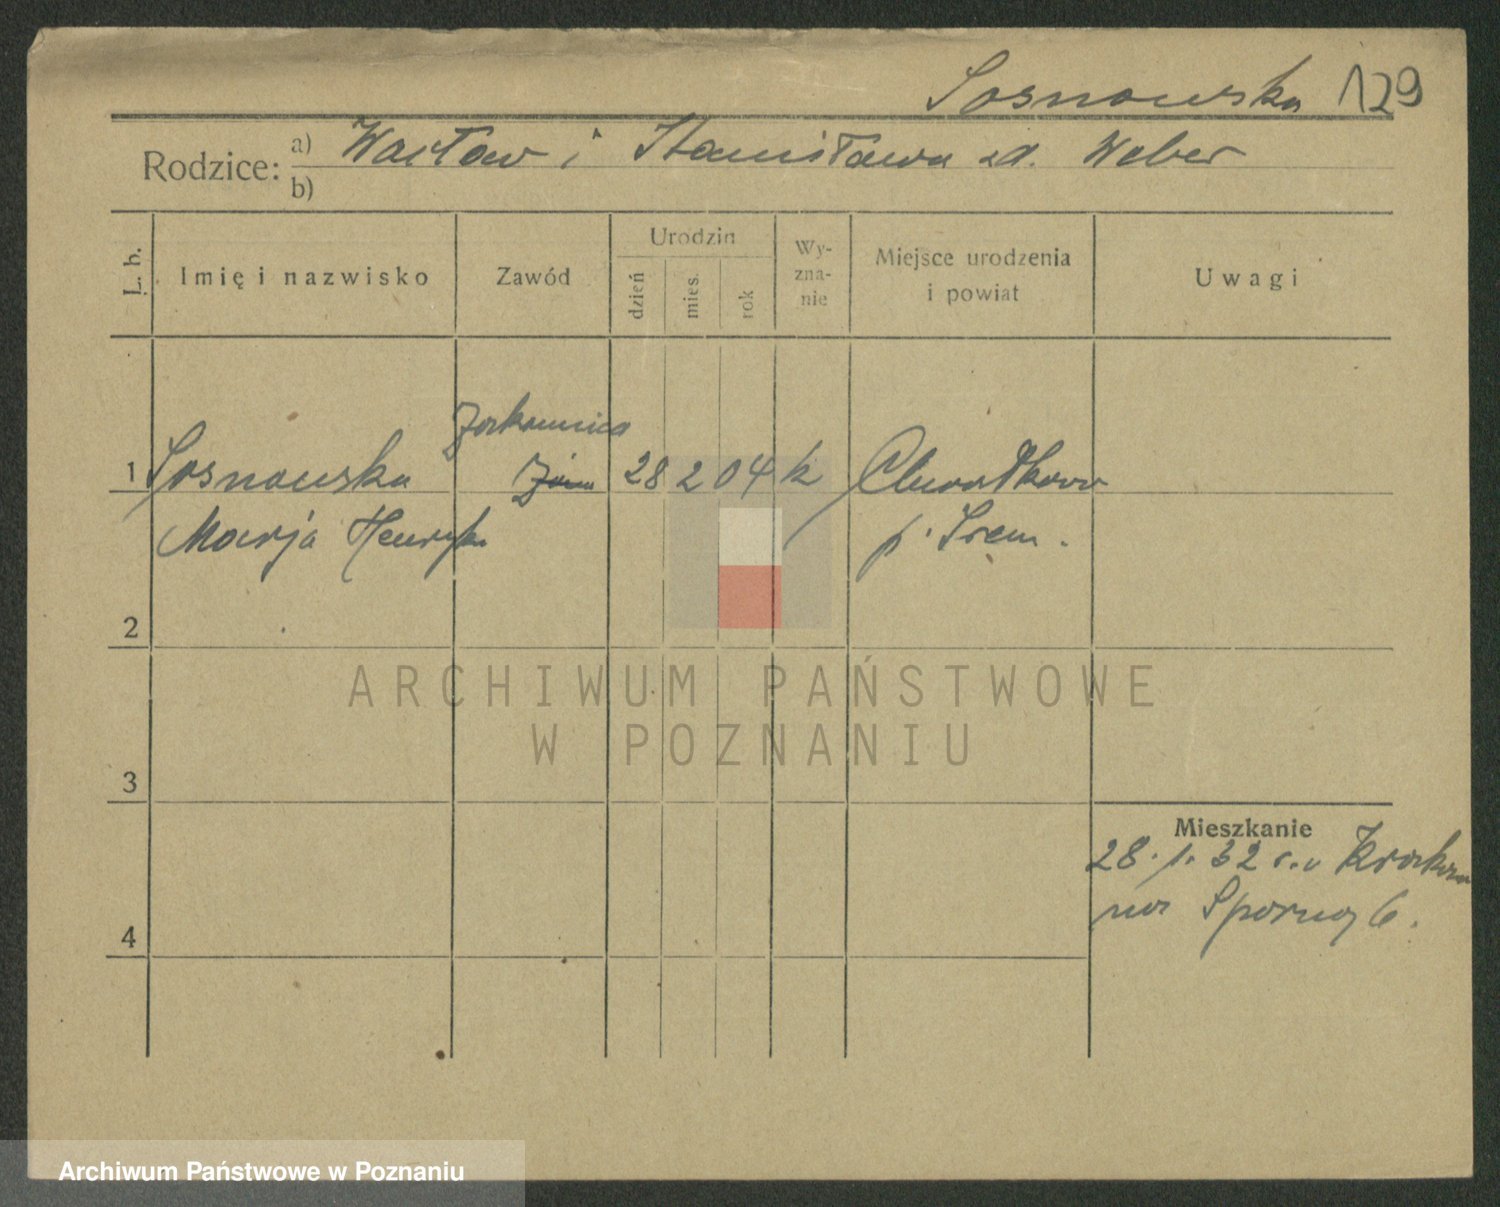 Sosnowska 129
Rodzice: a) Wacław i Stanisława zd. Weber
b)
L. b. Imię i nazwisko Zawód Urodzin dzień mies. rok Wy-zna-nie Miejsce urodzenia i powiat Uwagi
zakonnica
1 Sosnowska 28 2 04 k Chwałkowo
Marja Henryka p. Śrem.
2
ARCHIWUM PAŃSTWOWE
W POZNANIU
3
Mieszkanie
28. 1. 32 r. Krakowa
na Sporną 6.
4
Archiwum Państwowe w Poznaniu